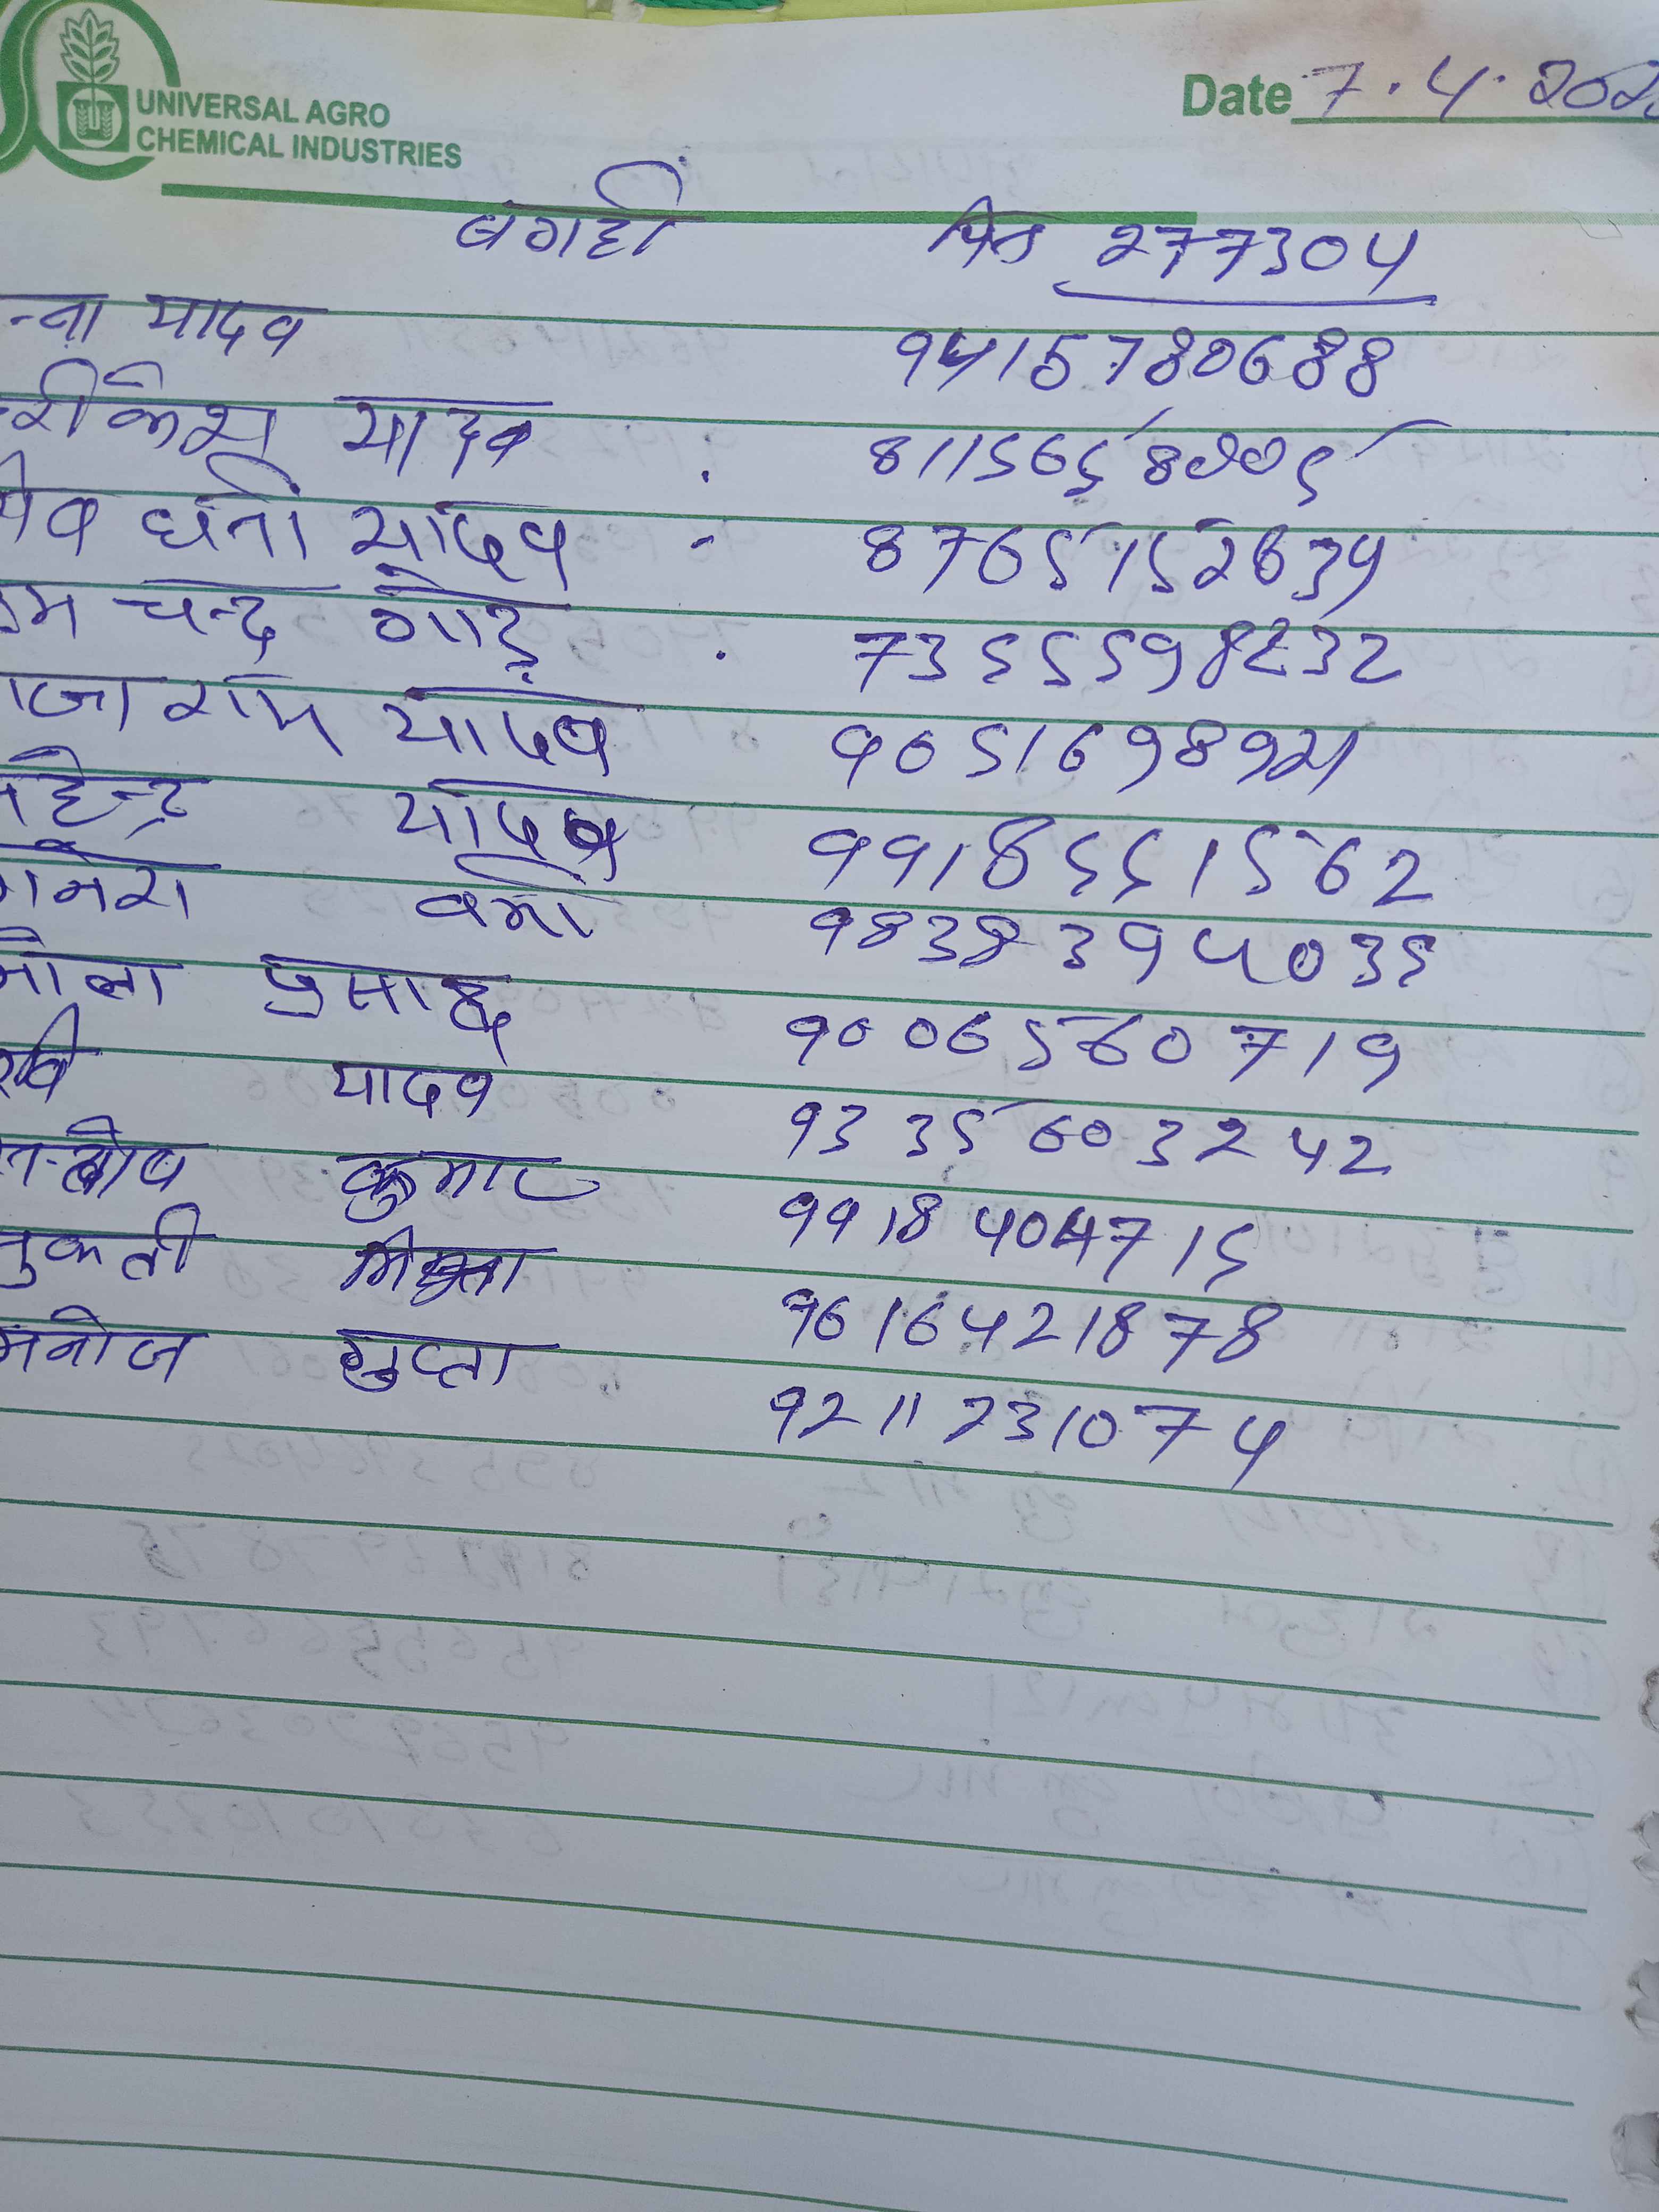 UNIVERSAL AGRO
CHEMICAL INDUSTRIES
Date 7.4.202
बगही पिन 277304
न्ना यादव 9415780688
रीकेश यादव
घनी यादव - 8765152634
चन्द्र गोड़ . 7355598232
जा राम यादव
हेन्द्र यादव 9918551562
गनेश वर्मा 9838394035
ोला प्रसाद 9006560719
रवि यादव 9335603242
कुमार 9918404715
ुकती 9616421878
मनोज गुप्ता 9211731074